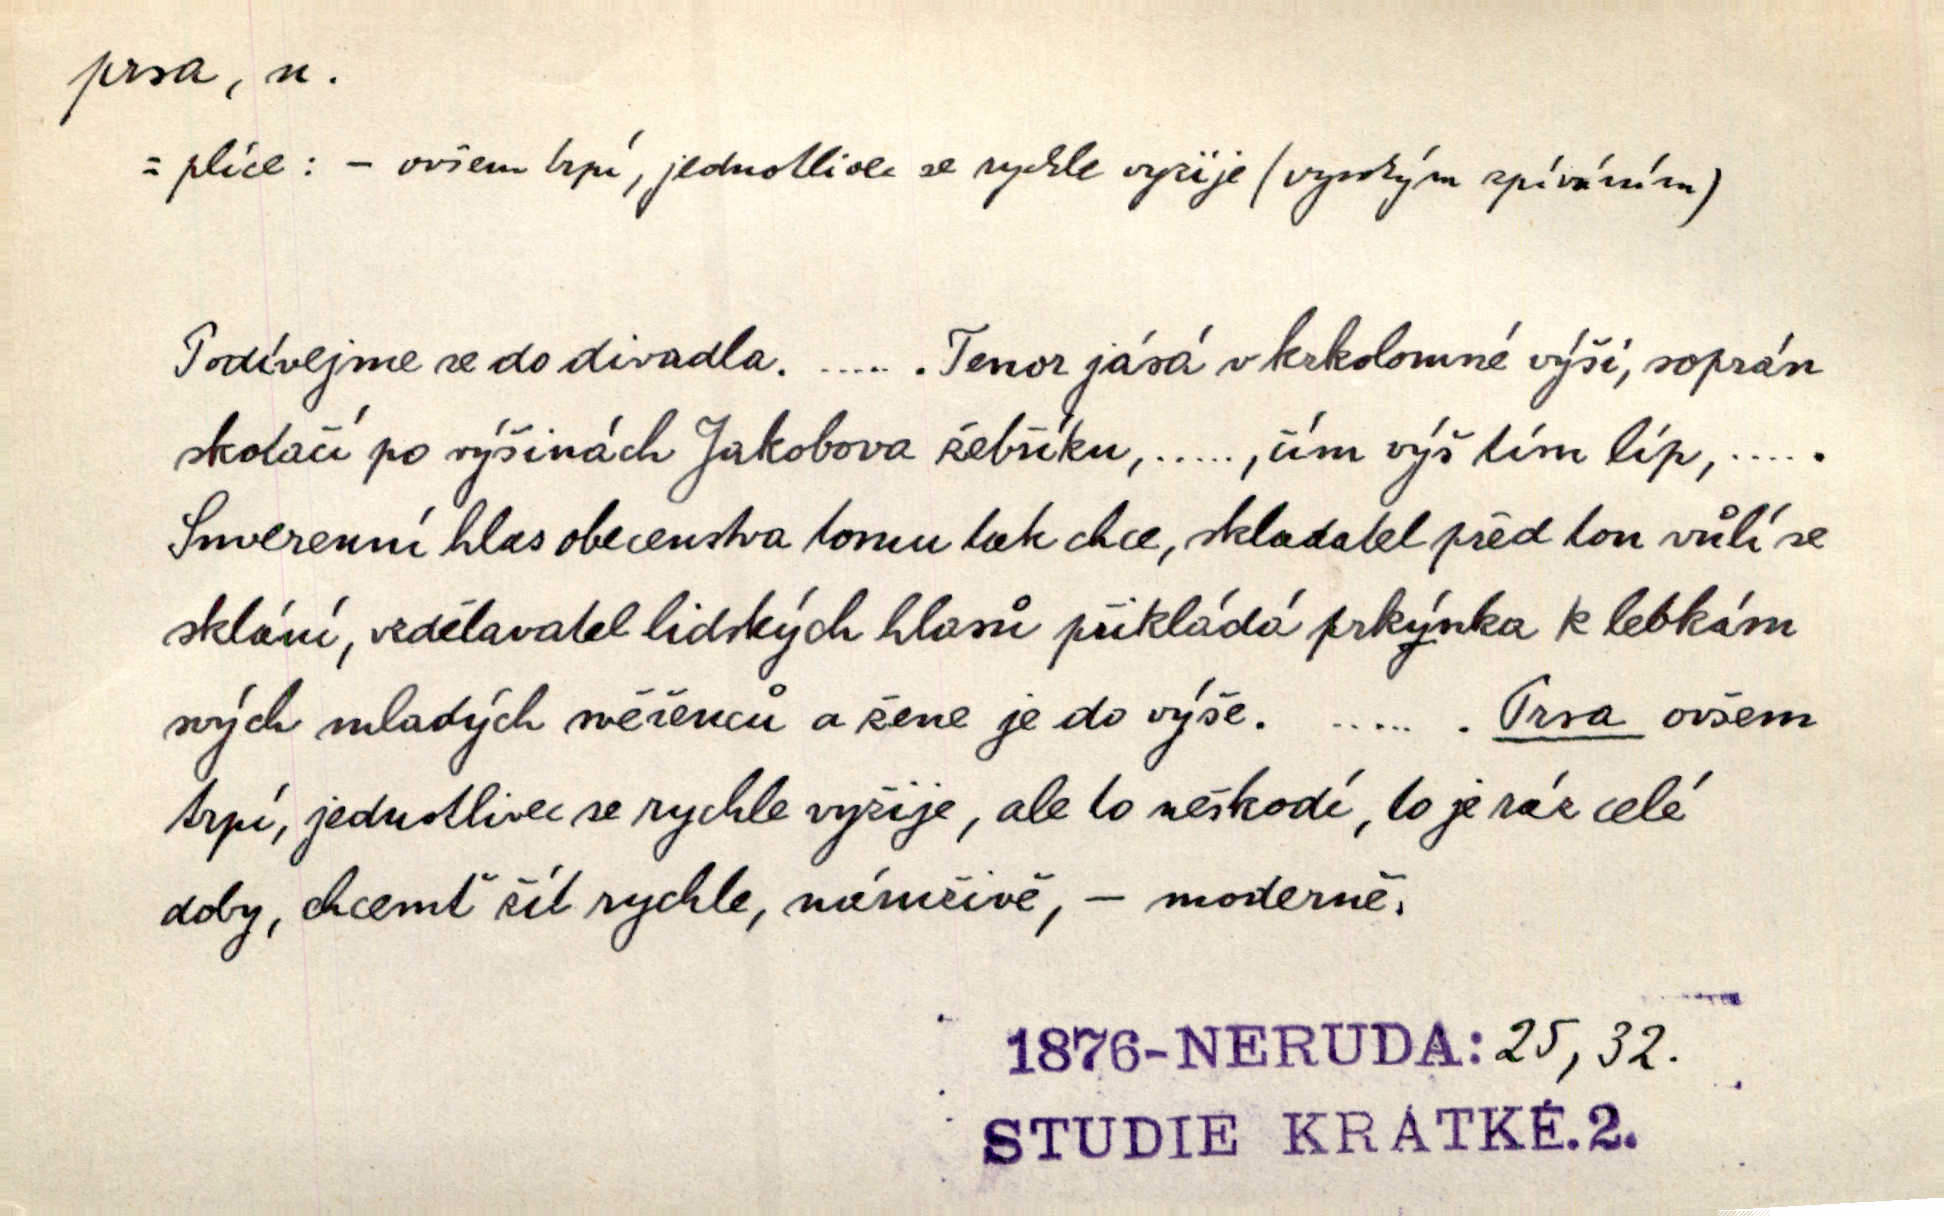 prsa, n.
= plíce: – ovšem trpí, jednotlivec se rychle vyžije (vysokým zpíváním)
Podívejme se do divadla. ..... . Tenor jásá v krkolomné výši, soprán
skotačí po výšinách Jakobova žebříku, ....., čím výš tím líp, ..... .
Suverenní hlas obecenstva tomu tak chce, skladatel před tou vůlí se
sklání, vzdělavatel lidských hlasů přikládá prkýnka k lebkám
svých mladých svěřenců a žene je do výše. ..... . Prsa ovšem
trpí, jednotlivec se rychle vyžije, ale to neškodí, to je ráz celé
doby, chcemť žít rychle, náruživě, – moderně.
1876-NERUDA: 25, 32.
STUDIE KRÁTKÉ.2.